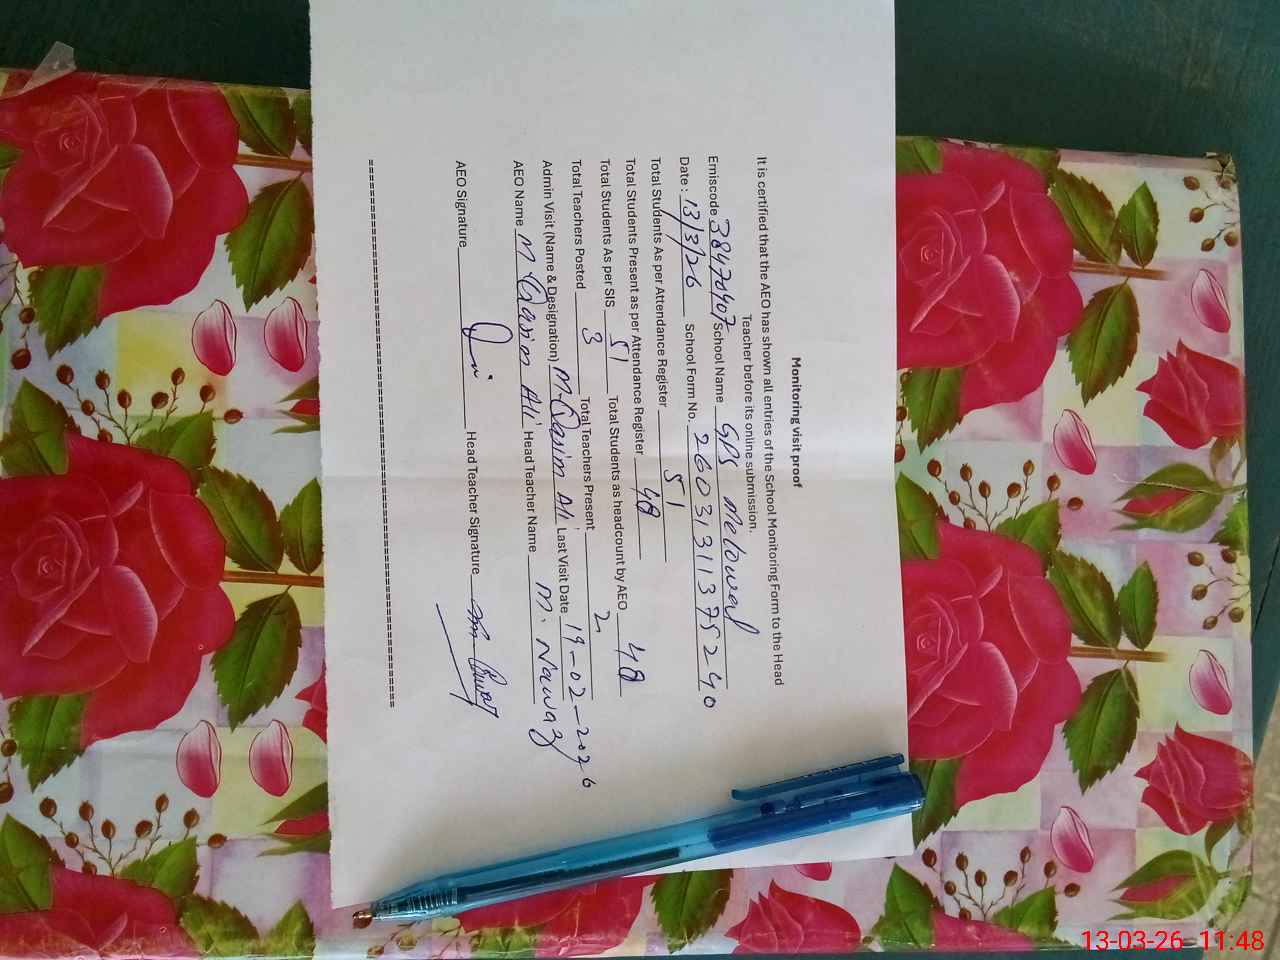 Monitoring visit proof
It is certified that the AEO has shown all entries of the School Monitoring Form to the Head
Teacher before its online submission.
Emiscode 38470407 School Name GPS Melowal
Date : 13/3/26 School Form No. 26031311375240
Total Students As per Attendance Register 51
Total Students Present as per Attendance Register 48
Total Students As per SIS 51 Total Students as headcount by AEO 48
Total Teachers Posted 3 Total Teachers Present 2
Admin Visit (Name & Designation) M. Qasim Ali Last Visit Date 19-02-2026
AEO Name M Qasim Ali Head Teacher Name M. Nawaz
AEO Signature Head Teacher Signature
13-03-26 11:48